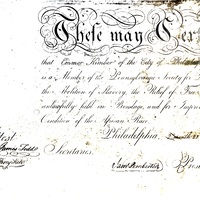 These may Cer
that Conner Kimber of the City of Philadelp
is a Member of the Pennsylvania Society for
the Abolition of Slavery, the Relief of Free
unlawfully held in Bondage, and for Improv
Condition of the African Race.
Philadelphia,
Attest.
Secretaries.
Pres